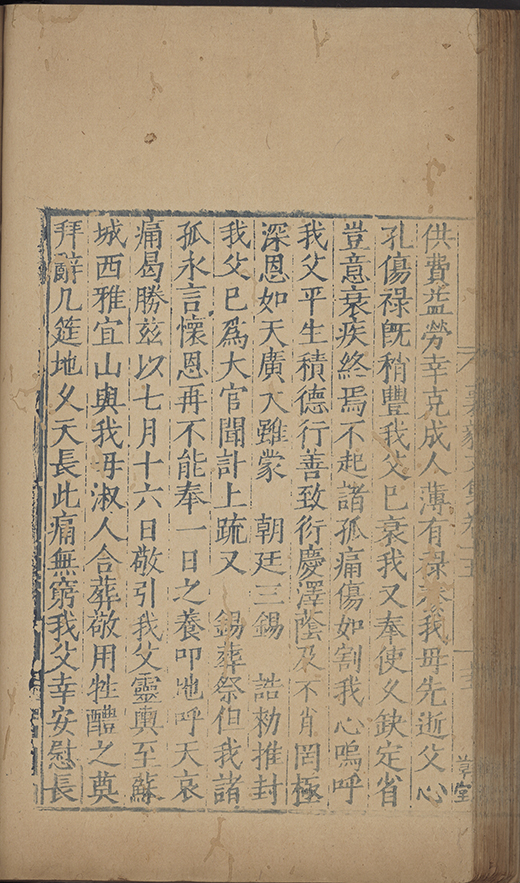 供費益勞幸克成人薄有祿養我母先逝父心
孔傷祿旣稍豐我父巳衰我又奉使久缺定省
豈意衰疾終焉不起諸孤痛傷如割我心嗚呼
我父平生積德行善致衍慶澤蔭及不肖罔極
深恩如天廣大雖蒙　朝廷三錫　誥勑推封
我父巳爲大官聞訃上疏又　錫葬祭伯我諸
孤永言懷恩再不能奉一日之養叩地呼天哀
痛曷勝兹以七月十六日敬引我父靈輿至蘇
城西雅宜山與我母淑人合葬敬用牲醴之奠
拜辭几筵地久天長此痛無窮我父幸安慰長